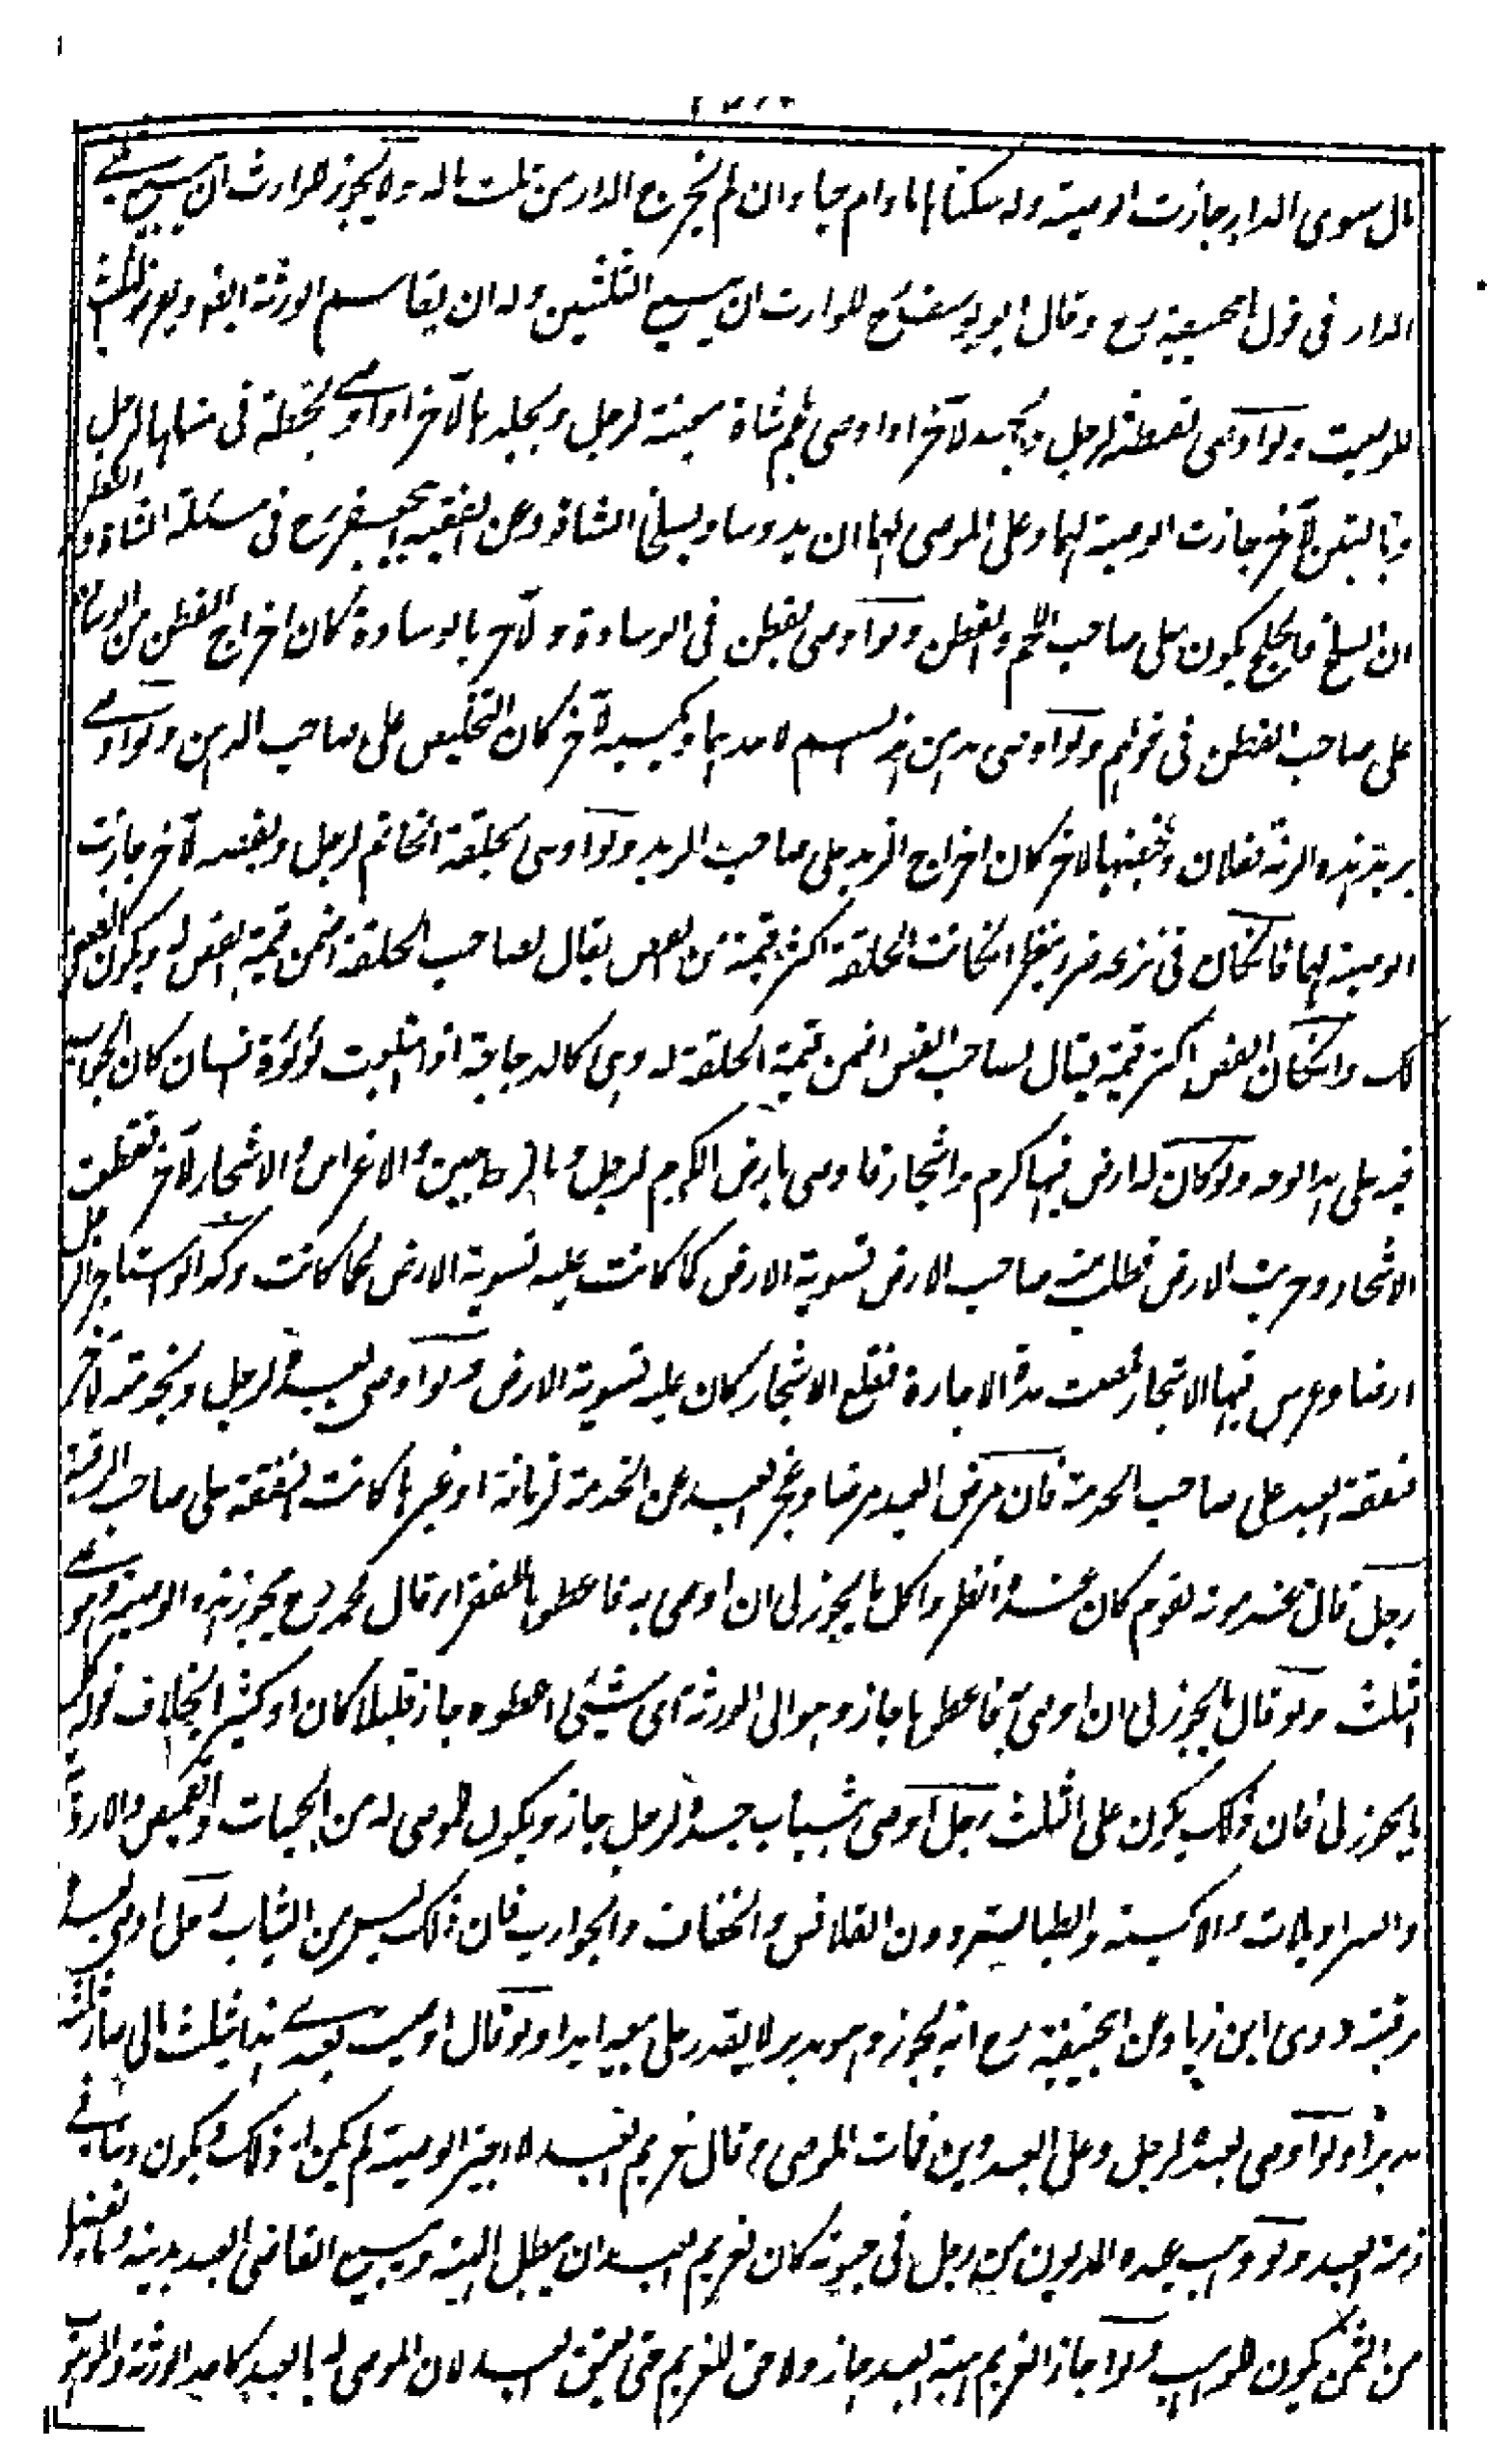 مال سوى الدار جازت الوصية وله سكناها ما دام حيا وان لم يخرج الدار من ثلث ماله ولا يجوز للوارث ان يبيع ثلثي
الدار في قول ابيحنيفة رح وقال ابو يوسف رح للوارث ان يبيع الثلثين وله ان يقاسم الورثة ايضا ويفرز الثلث
للوصية ولو اوصى بقطنه لرجل وبحبه لآخر او اوصى بلحم شاة معينة لرجل وبجلدها لآخر او اوصى بحنطة في سنبلها لرجل
وبالتبن لآخر جازت الوصية لهما وعلى الموصى لهما ان يدوسا ويسلخا الشاة وعن الفقيه ابيجعفر رح في مسئلة الشاة والقطن
ان السلخ والحلج يكون على صاحب اللحم والقطن ولو اوصى بقطن في الوسادة ولآخر بالوسادة كان اخراج القطن من الوسادة
على صاحب القطن في قولهم ولو اوصى بدهن هذا السمسم لاحدهما وبكسبه لآخر كان التخليص على صاحب الدهن ولو اوصى
بزبد هذه لفلان وبمخيضها لآخر كان اخراج الزبد على صاحب الزبد ولو اوصى بحلقة الخاتم لرجل وبفصه لآخر جازت
الوصية لهما فانكان في نزعه ضرر ينظر انكانت الحلقة اكثر قيمة من الفص يقال لصاحب الحلقة اضمن قيمة الفص له ويكون الفص
لك وانكان الفص اكثر قيمة يقال لصاحب الفص اضمن قيمة الحلقة له وهي كالدجاجة اذا ابتلعت لؤلؤة انسان كان الجواب
فيه على هذا الوجه ولو كان له ارض فيها كرم واشجار فاوصى بارض الكرم لرجل وبالرياحين والاغراس والاشجار لآخر فقطعت
الاشجار وخربت الارض فطلب منه صاحب الارض تسوية الارض كما كانت عليه تسوية الارض كما كانت وكذا لو استاجر الرجل
ارضا وغرس فيها الاشجار فمضت مدة الاجارة فقلع الاشجار كان عليه تسوية الارض ولو اوصى بعبده لرجل وبخدمته لآخر
فنفقة العبد على صاحب الخدمة فان مرض العبد مرضا وعجز العبد عن الخدمة لزمانة او غيرها كانت النفقة على صاحب الرقبة
رجل قال عند موته لقوم كان عنده انظروا كل ما يجوز لي ان اوصي به فاعطوها للفقراء قال محمد رح يجوز هذه الوصية وهو على
الثلث ولو قال ما يجوز لي ان اوصي به فاعطوها جاز وهو الى الورثة اي شيئ اعطوه جاز قليلا كان او كثيرا بخلاف قوله
ما يجوز لي فان ذلك يكون على الثلث رجل اوصى بثياب جسده لرجل جاز ويكون للموصى له من الجبات والقميص والاردية
والسراويلات والاكسية والطيالسة دون القلانس والخفاف والجوارب فان ذلك ليس من الثياب رجل اوصى لعبده
برقبته روى ابن زياد عن ابيحنيفة رح انه يجوز وهو مدبر لا يقدر على بيعه ابدا ولو قال اوصيت لعبدي هذا بثلث مالي صار ثلثه
مدبرا ولو اوصى بعبده لرجل وعلى العبد دين فمات الموصي وقال غريم العبد لا اجيز الوصية لم يكن له ذلك ويكون دينه في
ذمة العبد ولو وهب عبده المديون من رجل في حيوته كان لغريم العبد ان يبطل الهبة ويبيع القاضي العبد بدينه وما يفضل
من الثمن يكون للواهب ولو اجاز الغريم هبة العبد جاز ولا حق للغريم حتى يعتق العبد لان الموصى له بالعبد كاحد الورثة